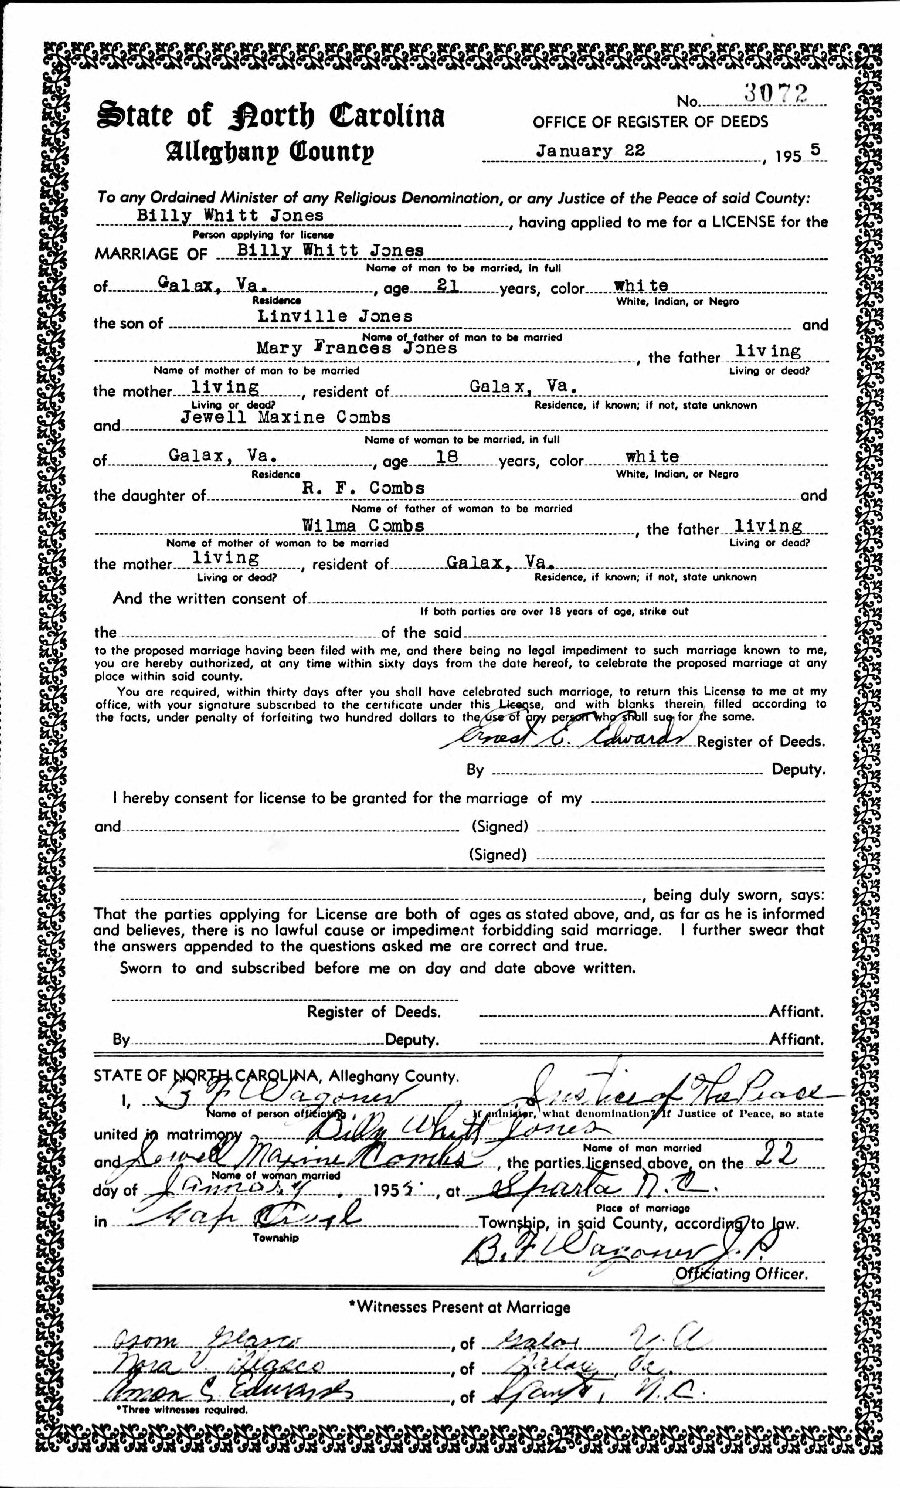 No. 3072
State of North Carolina
Alleghany County
OFFICE OF REGISTER OF DEEDS
January 22, 1955
To any Ordained Minister of any Religious Denomination, or any Justice of the Peace of said County:
Billy Whitt Jones, having applied to me for a LICENSE for the
Person applying for license
MARRIAGE OF Billy Whitt Jones
Name of man to be married, in full
of Galax, Va., age 21 years, color white
Residence White, Indian, or Negro
the son of Linville Jones and
Name of father of man to be married
Mary Frances Jones, the father living
Name of mother of man to be married Living or dead?
the mother living, resident of Galax, Va.
Living or dead? Residence, if known; if not, state unknown
and Jewell Maxine Combs
Name of woman to be married, in full
of Galax, Va., age 18 years, color white
Residence White, Indian, or Negro
the daughter of R. F. Combs and
Name of father of woman to be married
Wilma Combs, the father living
Name of mother of woman to be married Living or dead?
the mother living, resident of Galax, Va.
Living or dead? Residence, if known; if not, state unknown
And the written consent of
If both parties are over 18 years of age, strike out
the of the said
to the proposed marriage having been filed with me, and there being no legal impediment to such marriage known to me,
you are hereby authorized, at any time within sixty days from the date hereof, to celebrate the proposed marriage at any
place within said county.
You are required, within thirty days after you shall have celebrated such marriage, to return this License to me at my
office, with your signature subscribed to the certificate under this License, and with blanks therein filled according to
the facts, under penalty of forfeiting two hundred dollars to the use of any person who shall sue for the same.
Ernest E. Edwards Register of Deeds.
By Deputy.
I hereby consent for license to be granted for the marriage of my
and (Signed)
(Signed)
, being duly sworn, says:
That the parties applying for License are both of ages as stated above, and, as far as he is informed
and believes, there is no lawful cause or impediment forbidding said marriage. I further swear that
the answers appended to the questions asked me are correct and true.
Sworn to and subscribed before me on day and date above written.
Register of Deeds. Affiant.
By Deputy. Affiant.
STATE OF NORTH CAROLINA, Alleghany County.
I, B F Wagoner Justice of The Peace
Name of person officiating If minister, what denomination? If Justice of Peace, so state
united in matrimony Billy Whitt Jones
Name of man married
and Jewell Maxine Combs, the parties licensed above, on the 22
Name of woman married
day of January, 1955, at Sparta N.C.
Place of marriage
in Gap Civil Township, in said County, according to law.
Township
B. F Wagoner J. P.
Officiating Officer.
*Witnesses Present at Marriage
Glasco, of Galax V A
Nora Glasco, of Galax Va
Amon C Edwards, of Sparta, N.C.
*Three witnesses required.